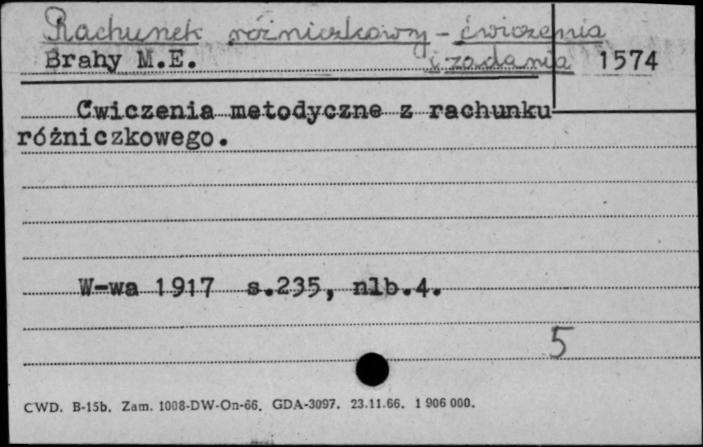 Rachunek różniczkowy - ćwiczenia
i zadania
Brahy M.E. 1574
Cwiczenia metodyczne z rachunku
różniczkowego.
W-wa 1917 s.235, nlb.4.
5
CWD. B-15b. Zam. 1008-DW-On-66. GDA-3097. 23.11.66. 1 906 000.